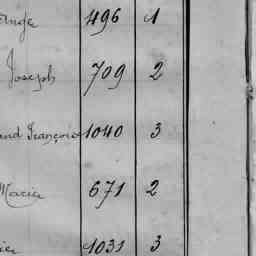 Ange 496 1
Joseph 709 2
and François 1040 3
Marie 671 2
1031 3